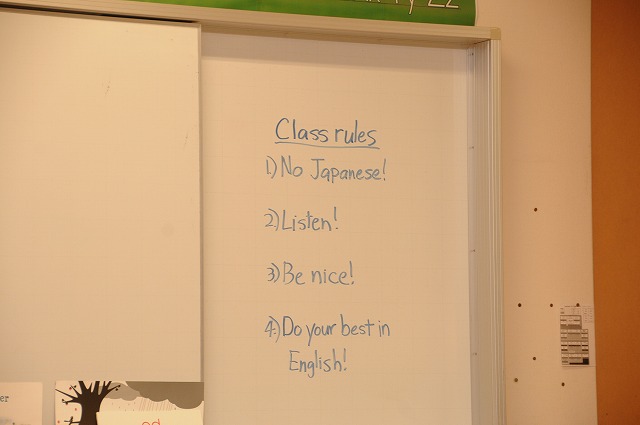 Class rules
1.) No Japanese!
2.) Listen!
3.) Be nice!
4.) Do your best in
English!
er
ed